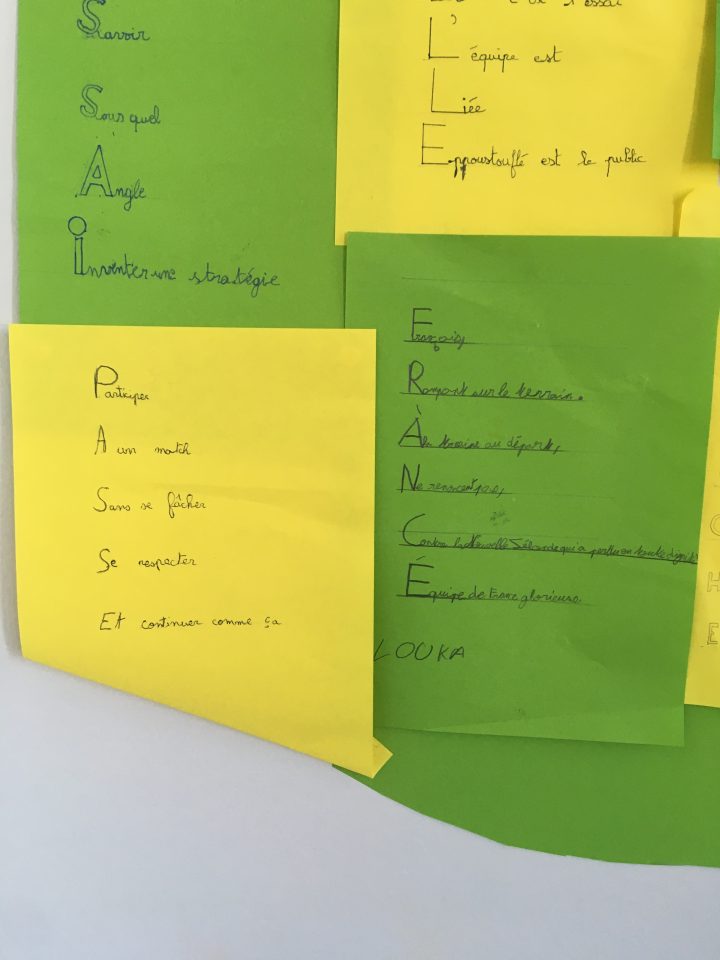 Savoir
Sous quel
Angle
Inventer une stratégie
l'essai
L'équipe est
Liée
Eppoustouflé est le public
Participer
A un match
Sans se fâcher
Se respecter
Et continuer comme ça
Français,
Rampant sur le terrain.
À la traine au départ,
Ne renoncent pas,
Contre la Nouvelle Zélande qui a perdu en toute dignité
Équipe de France glorieuse
LOUKA
H
E